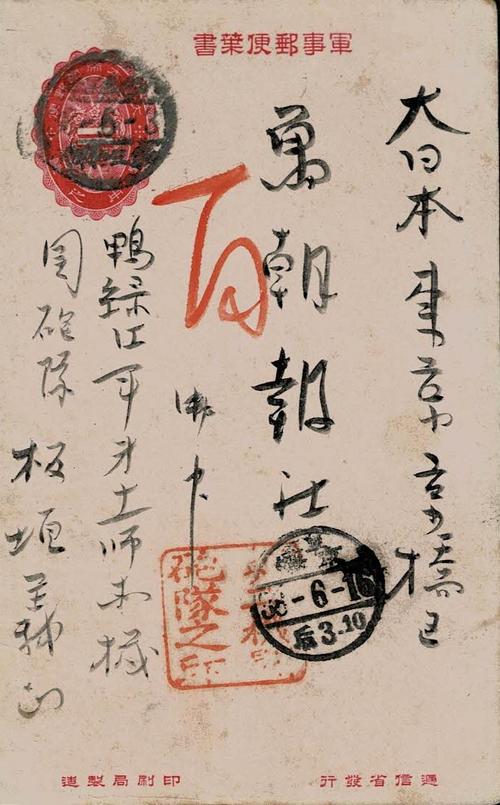 軍事郵便葉書
大日本東京市京橋区
萬朝報社
御中
鴨緑江軍才十一師
関砲隊 板垣
砲隊之印
38-6-16
后3.10
遞信省發行
印刷局製造